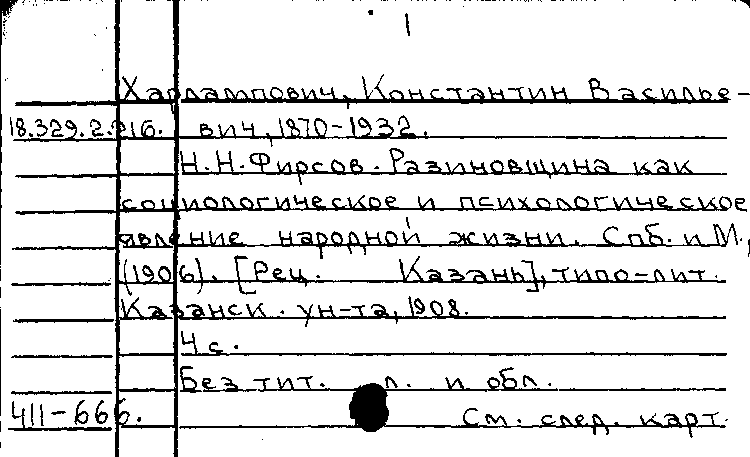 1
Харлампович, Константин Василье-
18.329.2.216. вич, 1870-1932.
Н.Н.Фирсов. Разиновщина как
социологическое и психологическое
явление народной жизни. Спб. и М.,
(1906). [Рец. Казань], типо-лит.
Казанск. ун-та, 1908.
4 с.
Без тит. л. и обл.
411-666. См. след. карт.